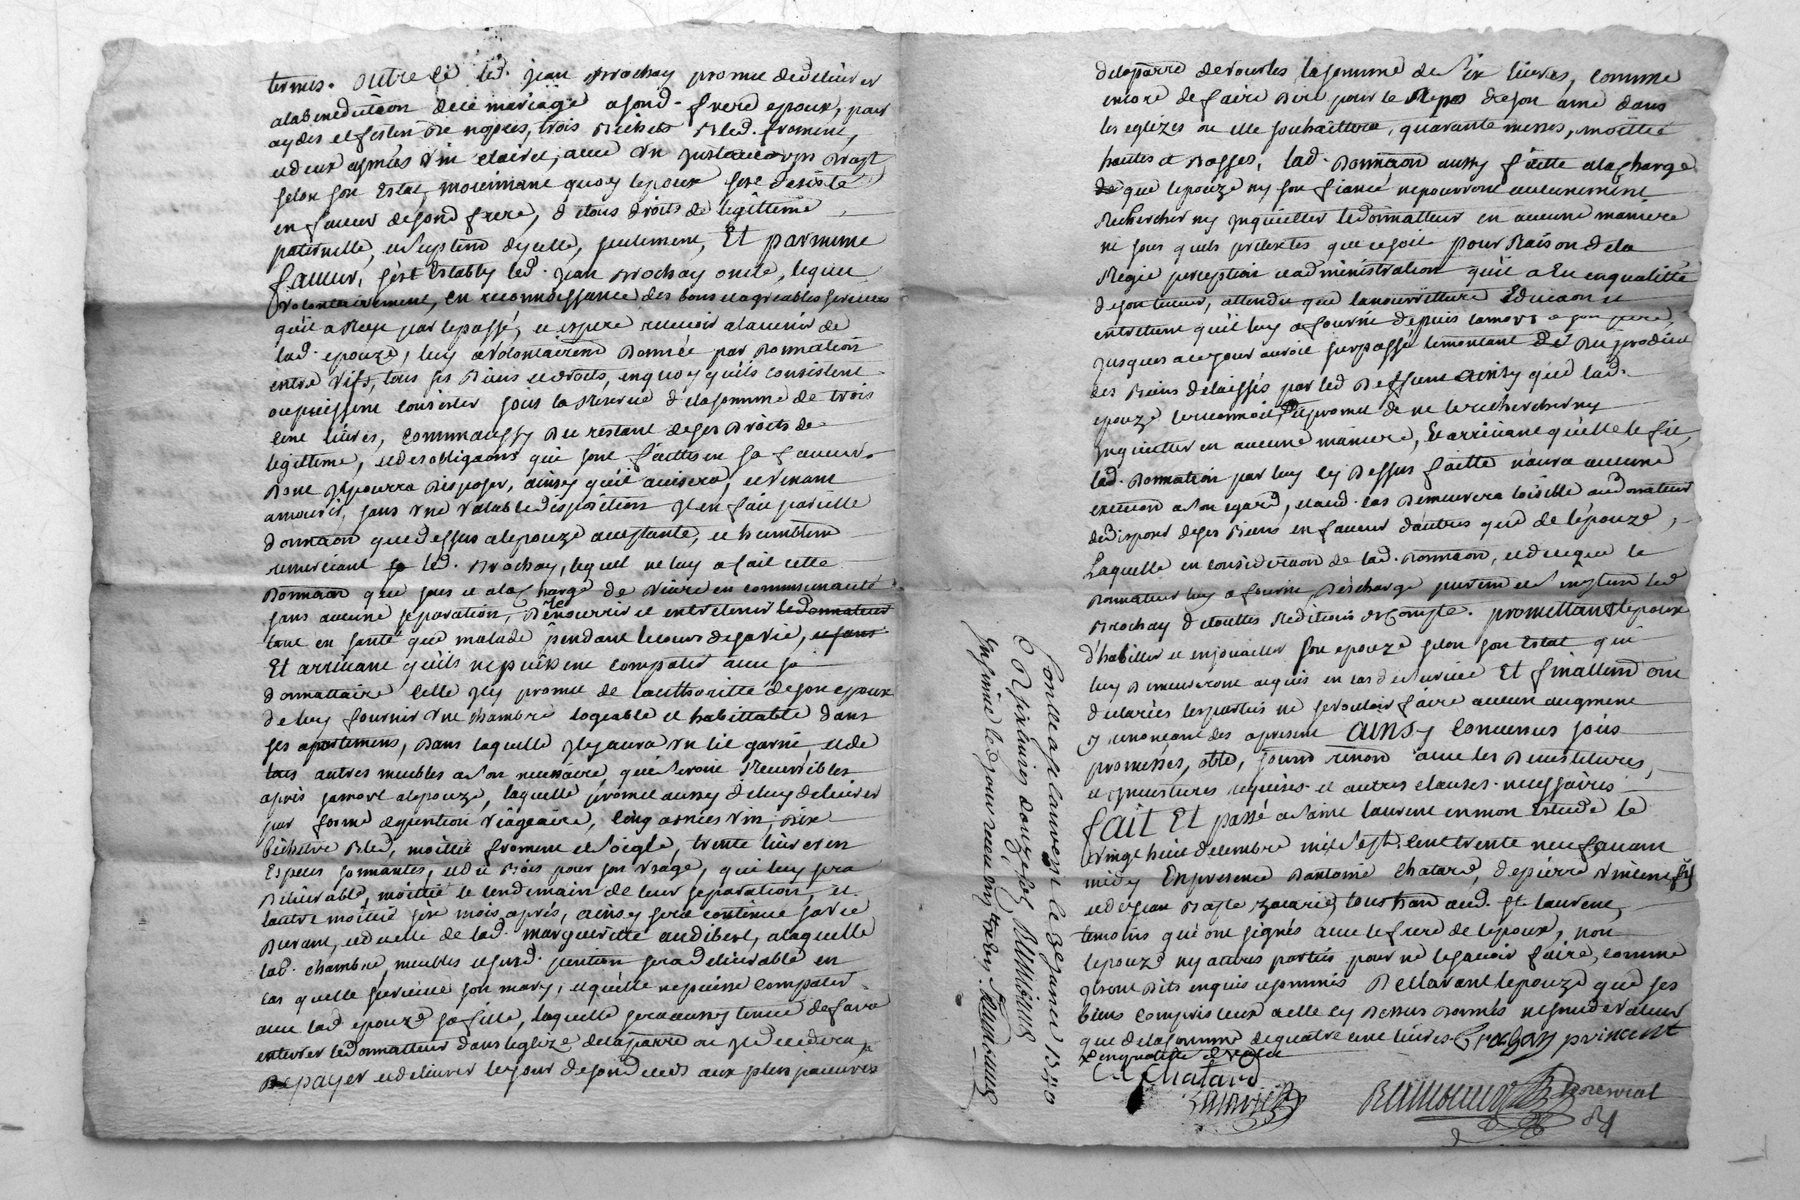 termes. outre ce led. jean Brochay promet de delivrer
a la benediction de ce mariage a sond. frere epoux, pour
aydes et festin de nopces, trois bichets bled froment,
et deux asnées vin clairet, avec un justaucorps drapt
selon son estat, moiennant quoy lepoux sest desisté
en faveur de sond frere, de tous droits de legitteme
paternelle, et suplem dycelle, seulement, Et parmeme
faveur, s'est Estably led. jean Brochay oncle, lequel
volontairement, en reconnoissance des bons et agreables services
qu'il a reçu par le passé, et espere recevoir a lavenir de
lad. epouze, luy a volontairem donné par donnation
entre vifs, tous ses biens et droits, en quoy qu'ils consistent
ou puissent consister sous la reserve de la somme de trois
cent livres, comm'aussy du restant de ses droits de
legitteme, et des obligaons qui sont faittes en sa faveur.
dont il pourra disposer, ainsy qu'il avisera, et venant
a mourir, sans une valable disposition il en fait pareille
donnaon que dessus a lepouze acceptante, et humblem
remerciant led. Brochay, lequel ne luy a fait cette
donnaon que sous et a la charge de vivre en communauté
sans aucune separation, de nourrir et entretenir le donnateur
tant en santé que malade pendant le cours de sa vie, et sans
Et arrivant qu'ils ne puissent compatir avec sa
donnattaire celle cy promet de lauthoritté de son epoux
de luy fournir une chambre logeable et habittable dans
ses apartemens, dans laquelle il y aura un lit garni, et de
tous autres meubles a son necessaire, qui seront reversibles
apres sa mort a lepouze, laquelle promet aussy de luy delivrer
par forme de pention viageaire, cinq asnées vin, dix
bichets bled, moittié froment et soigle, trente livres en
Especes sonnantes, et du bois pour son usage, qui luy sera
delivrable, moittié le lendemain de leur separation, et
lautre moittié six mois après, ainsy sera continué sa vie
durant, et de celle de lad. margueritte audibert, a laquelle
lad. chambre, meubles et susd. pention sera delivrable en
cas quelle survive son mary, et qu'elle ne puisse compatir
avec lad epouze sa fille, laquelle sera aussy tenue de faire
enterrer le donnatteur dans leglize de la parre ou il decedera,
de payer et delivrer le jour de son deces aux plus pauvres
de la parre de vourles la somme de six livres, comme
encore de faire dire pour le repos de son ame dans
les eglizes ou elle souhaittera, quarante messes, moittié
hautes et basses, lad. donnaon aussy faitte a la charge
de que lepouze ny son fiancé ne pourront aucunement
rechercher ny inquietter le donnatteur en aucune maniere
ne sous quels pretextes que ce soit pour raison de la
regie perception et administration qu'il a Eu en qualitté
de son tuteur, attendu que la nourritture Educaon et
entretient qu'il luy a fourni depuis la mort de son pere,
jusques a ce jour auroit surpassé le montant du produit
des biens delaissés par led Deffunt ainsy que lad.
epouze le reconnoit, et promet de ne le rechercher ny
inquietter en aucune maniere, Et arrivant qu'elle le fit,
lad. donnation par luy cy dessus faitte n'aura aucune
exécution a son egard, et aud. cas demeurera loisible au donnateur
de disposer de ses biens en faveur d'autres que de lépouze,
Laquelle en consideraon de lad. donnaon, et de ce que le
donnateur luy a fourni, décharge purem et simplem led
Brochay de touttes redditions de compte. promettant lepoux
d'habiller et enjoualler son epouze selon son Estat qui
luy demeureront acquis en cas de survie Et finallem ont
declarées les parties ne se vouloir faire aucun augment
y renonceant des apresent ainsy convenus sous
promesses, oblo, soumo renono avec les desistitures,
et investitures requises et autres clauses necessaires
fait Et passé a saint laurent en mon Estude le
vingt huit decembre mil sept cent trente neuf avant
midy En presence d'antoine Chatard, de pierre vincent fils
et de jean Baste zacarie, tous trois aud. st laurent,
temoins qui ont signés avec le frere de lepoux, non
lepouze ny autres parties pour ne le scavoir faire, comme
ils ont dits enquis et sommés Declarant lepouze que ses
biens compris ceux a elle cy dessus donnés ne sont de valeur
que de la somme de quatre cent livres Brochay p vincent
C. Chatard
zacarie
provincial
Controllé a st laurent le 2e janvier 1740
R. six livres douze sols
Insinué led. jour receu